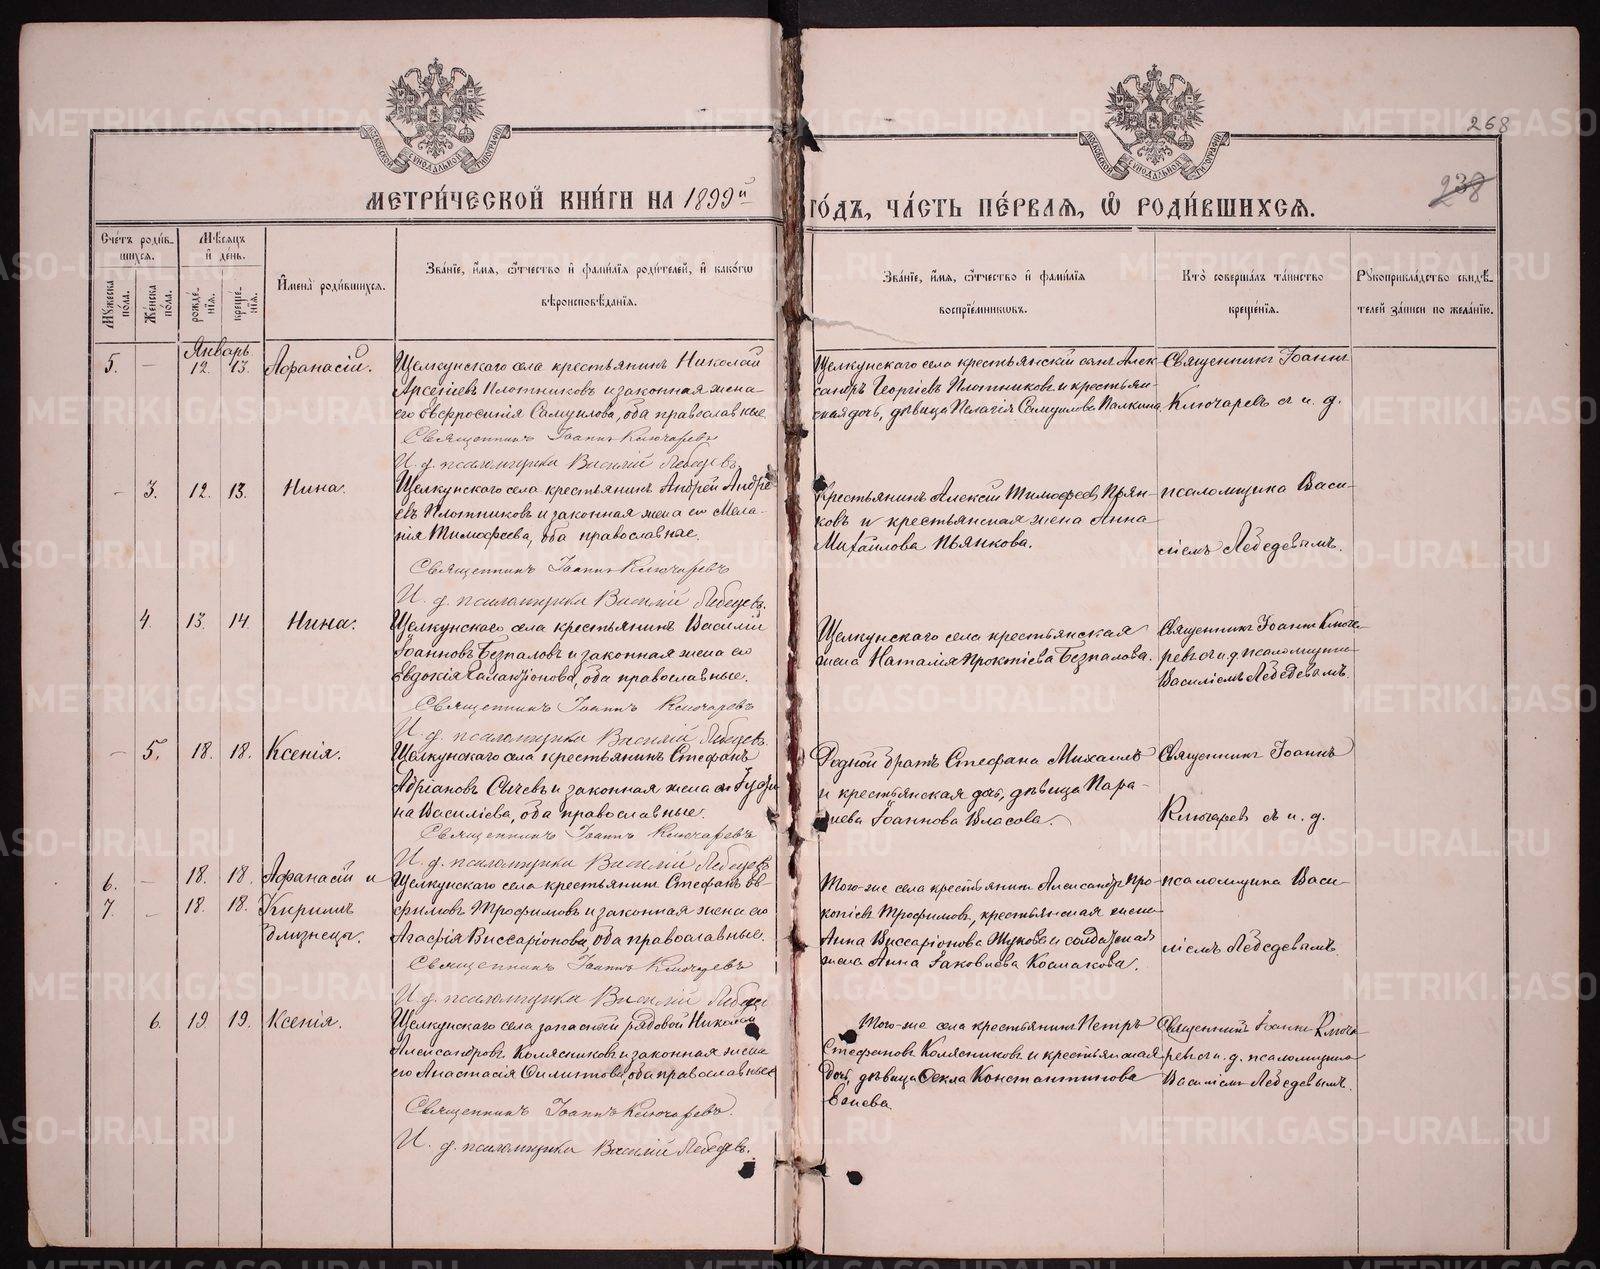 268
238
МЕТРИ́ЧЕСКОЙ КНИ́ГИ НА 1899й ГО́ДЪ, ЧА́СТЬ ПЕ́РВАЯ, Ѡ РОДИ́ВШИХСЯ.
Сче́тъ роди́в-
шихся.
Мꙋжеска по́ла.
Же́нска по́ла.
Мѣ́сяцъ и де́нь.
рожде́-нїя.
креще́-нїя.
И҆мена̀ роди́вшихся.
Зва́нїе, и҆́мя, ѻ҆́тчество и҆ фами́лїя роди́телей, и҆ како́гѡ
вѣроисповѣ́данїя.
Зва́нїе, и҆́мя, ѻ҆́тчество и҆ фами́лїя
воспрїе́мникѡвъ.
Кто̀ соверша́лъ та́инство
креще́нїя.
Рꙋкоприкла́дство свидѣ́-
телей за́писи по жела́нїю.
Январь
5. — 12. 13. Аѳанасій.
Щелкунскаго села крестьянинъ Николай
Арсеніевъ Плотниковъ и законная жена
его Евфросинія Самуилова, оба православные.
Священникъ Іоаннъ Ключаревъ
И. д. псаломщика Василій Лебедевъ.
Щелкунскаго села крестьянскій сынъ Алек-
сандръ Георгіевъ Плотниковъ и крестьян-
ская дочь, дѣвица Пелагія Самуилова Палкина
Священникъ Іоаннъ
Ключаревъ съ и. д.
— 3. 12. 13. Нина.
Щелкунскаго села крестьянинъ Андрей Андре-
евъ Плотниковъ и законная жена его Мела-
нія Тимофеева, оба православные.
Священникъ Іоаннъ Ключаревъ
И. д. псаломщика Василій Лебедевъ.
Крестьянинъ Алексій Тимофеевъ Пьян-
ковъ и крестьянская жена Анна
Михайлова Пьянкова.
псаломщика Васи-
ліемъ Лебедевымъ.
4. 13. 14. Нина.
Щелкунскаго села крестьянинъ Василій
Іоанновъ Безпаловъ и законная жена его
Евдокія Галактіонова, оба православные.
Священникъ Іоаннъ Ключаревъ
И. д. псаломщика Василій Лебедевъ.
Щелкунскаго села крестьянская
жена Наталія Безпалова.
Священникъ Іоаннъ Ключа-
ревъ съ и. д. псаломщика
Василіемъ Лебедевымъ.
— 5. 18. 18. Ксенія.
Щелкунскаго села крестьянинъ Стефанъ
Адріановъ Сычевъ и законная жена его
на Василіева, оба православные.
Священникъ Іоаннъ Ключаревъ
И. д. псаломщика Василій Лебедевъ
Родной братъ Стефана Михаилъ
и крестьянская дочь, дѣвица Пара-
скева Іоаннова Власова.
Священникъ Іоаннъ
Ключаревъ съ и. д.
6. — 18. 18. Аѳанасій и
7. — 18. 18. Кириллъ
близнецы.
Щелкунскаго села крестьянинъ Стефанъ Ев-
фимовъ Трофимовъ и законная жена его
Агафія Виссаріонова, оба православные.
Священникъ Іоаннъ Ключаревъ
И. д. псаломщика Василій Лебедевъ
Того-же села крестьянинъ Александръ Про-
копіевъ Трофимовъ, крестьянская жена
Анна Виссаріонова Жукова и солдатская
жена Анна Іаковлева Космакова.
псаломщика Васи-
ліемъ Лебедевымъ.
6. 19. 19. Ксенія.
Щелкунскаго села запасный рядовой Николай
Александровъ Колясниковъ и законная жена
его Анастасія Филиппова, оба православные
Священникъ Іоаннъ Ключаревъ.
И. д. псаломщика Василій Лебедевъ.
Того-же села крестьянинъ Петръ
Стефановъ Колясниковъ и крестьянская
дочь, дѣвица Ѳекла Константинова
Священникъ Іоаннъ Ключа-
ревъ съ и. д. псаломщика
Василіемъ Лебедевымъ.
METRIKI.GASO-URAL.RU